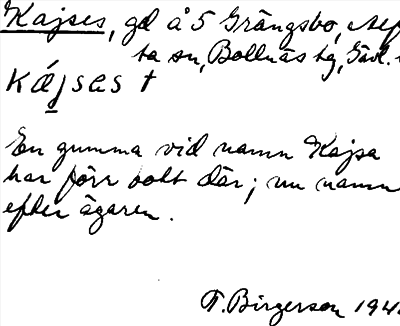 Kajses, gd å 5 Grängsbo, Alf
ta sn, Bollnäs tg, Gävl.
kájsas t
En gumma vid namn Kajsa
har förr bott där; nu namn
efter ägaren.
F. Birgerson 194